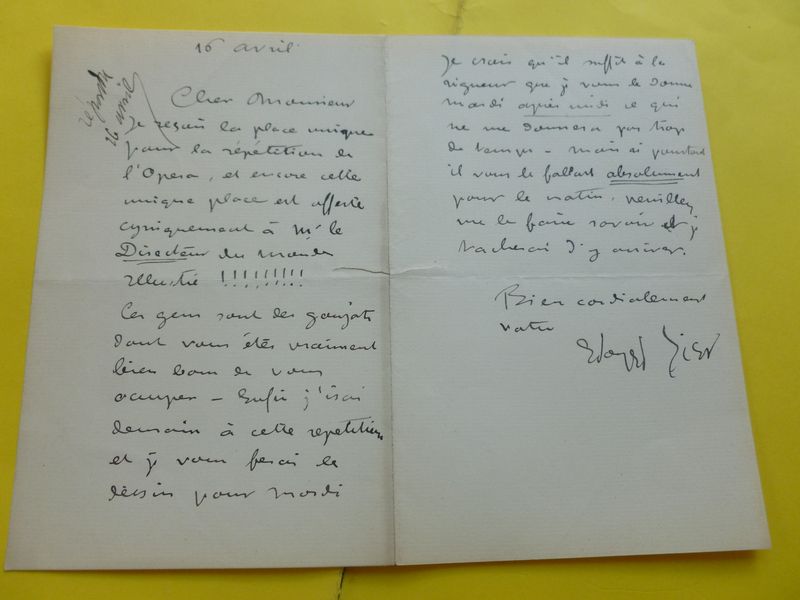 16 avril
répondu
16
Cher Monsieur
Je reçois la place unique
pour la répétition de
l'Opera, et encore cette
unique place est offerte
cyniquement à Mr le
Directeur du monde
Illustré !!!!!!!!!
Ces gens sont des goujats
dont vous êtes vraiment
bien bon de vous
occuper – Enfin j'irai
demain à cette repetition
et je vous ferai le
dessin pour mardi
Je crois qu'il suffit à la
rigueur que je vous le donne
mardi après midi ce qui
ne me donnera pas trop
de temps – mais si pourtant
il vous le fallait absolument
pour le matin, veuillez
me le faire savoir et je
tacherai d'y arriver.
Bien cordialement
votre
Edouard Zier